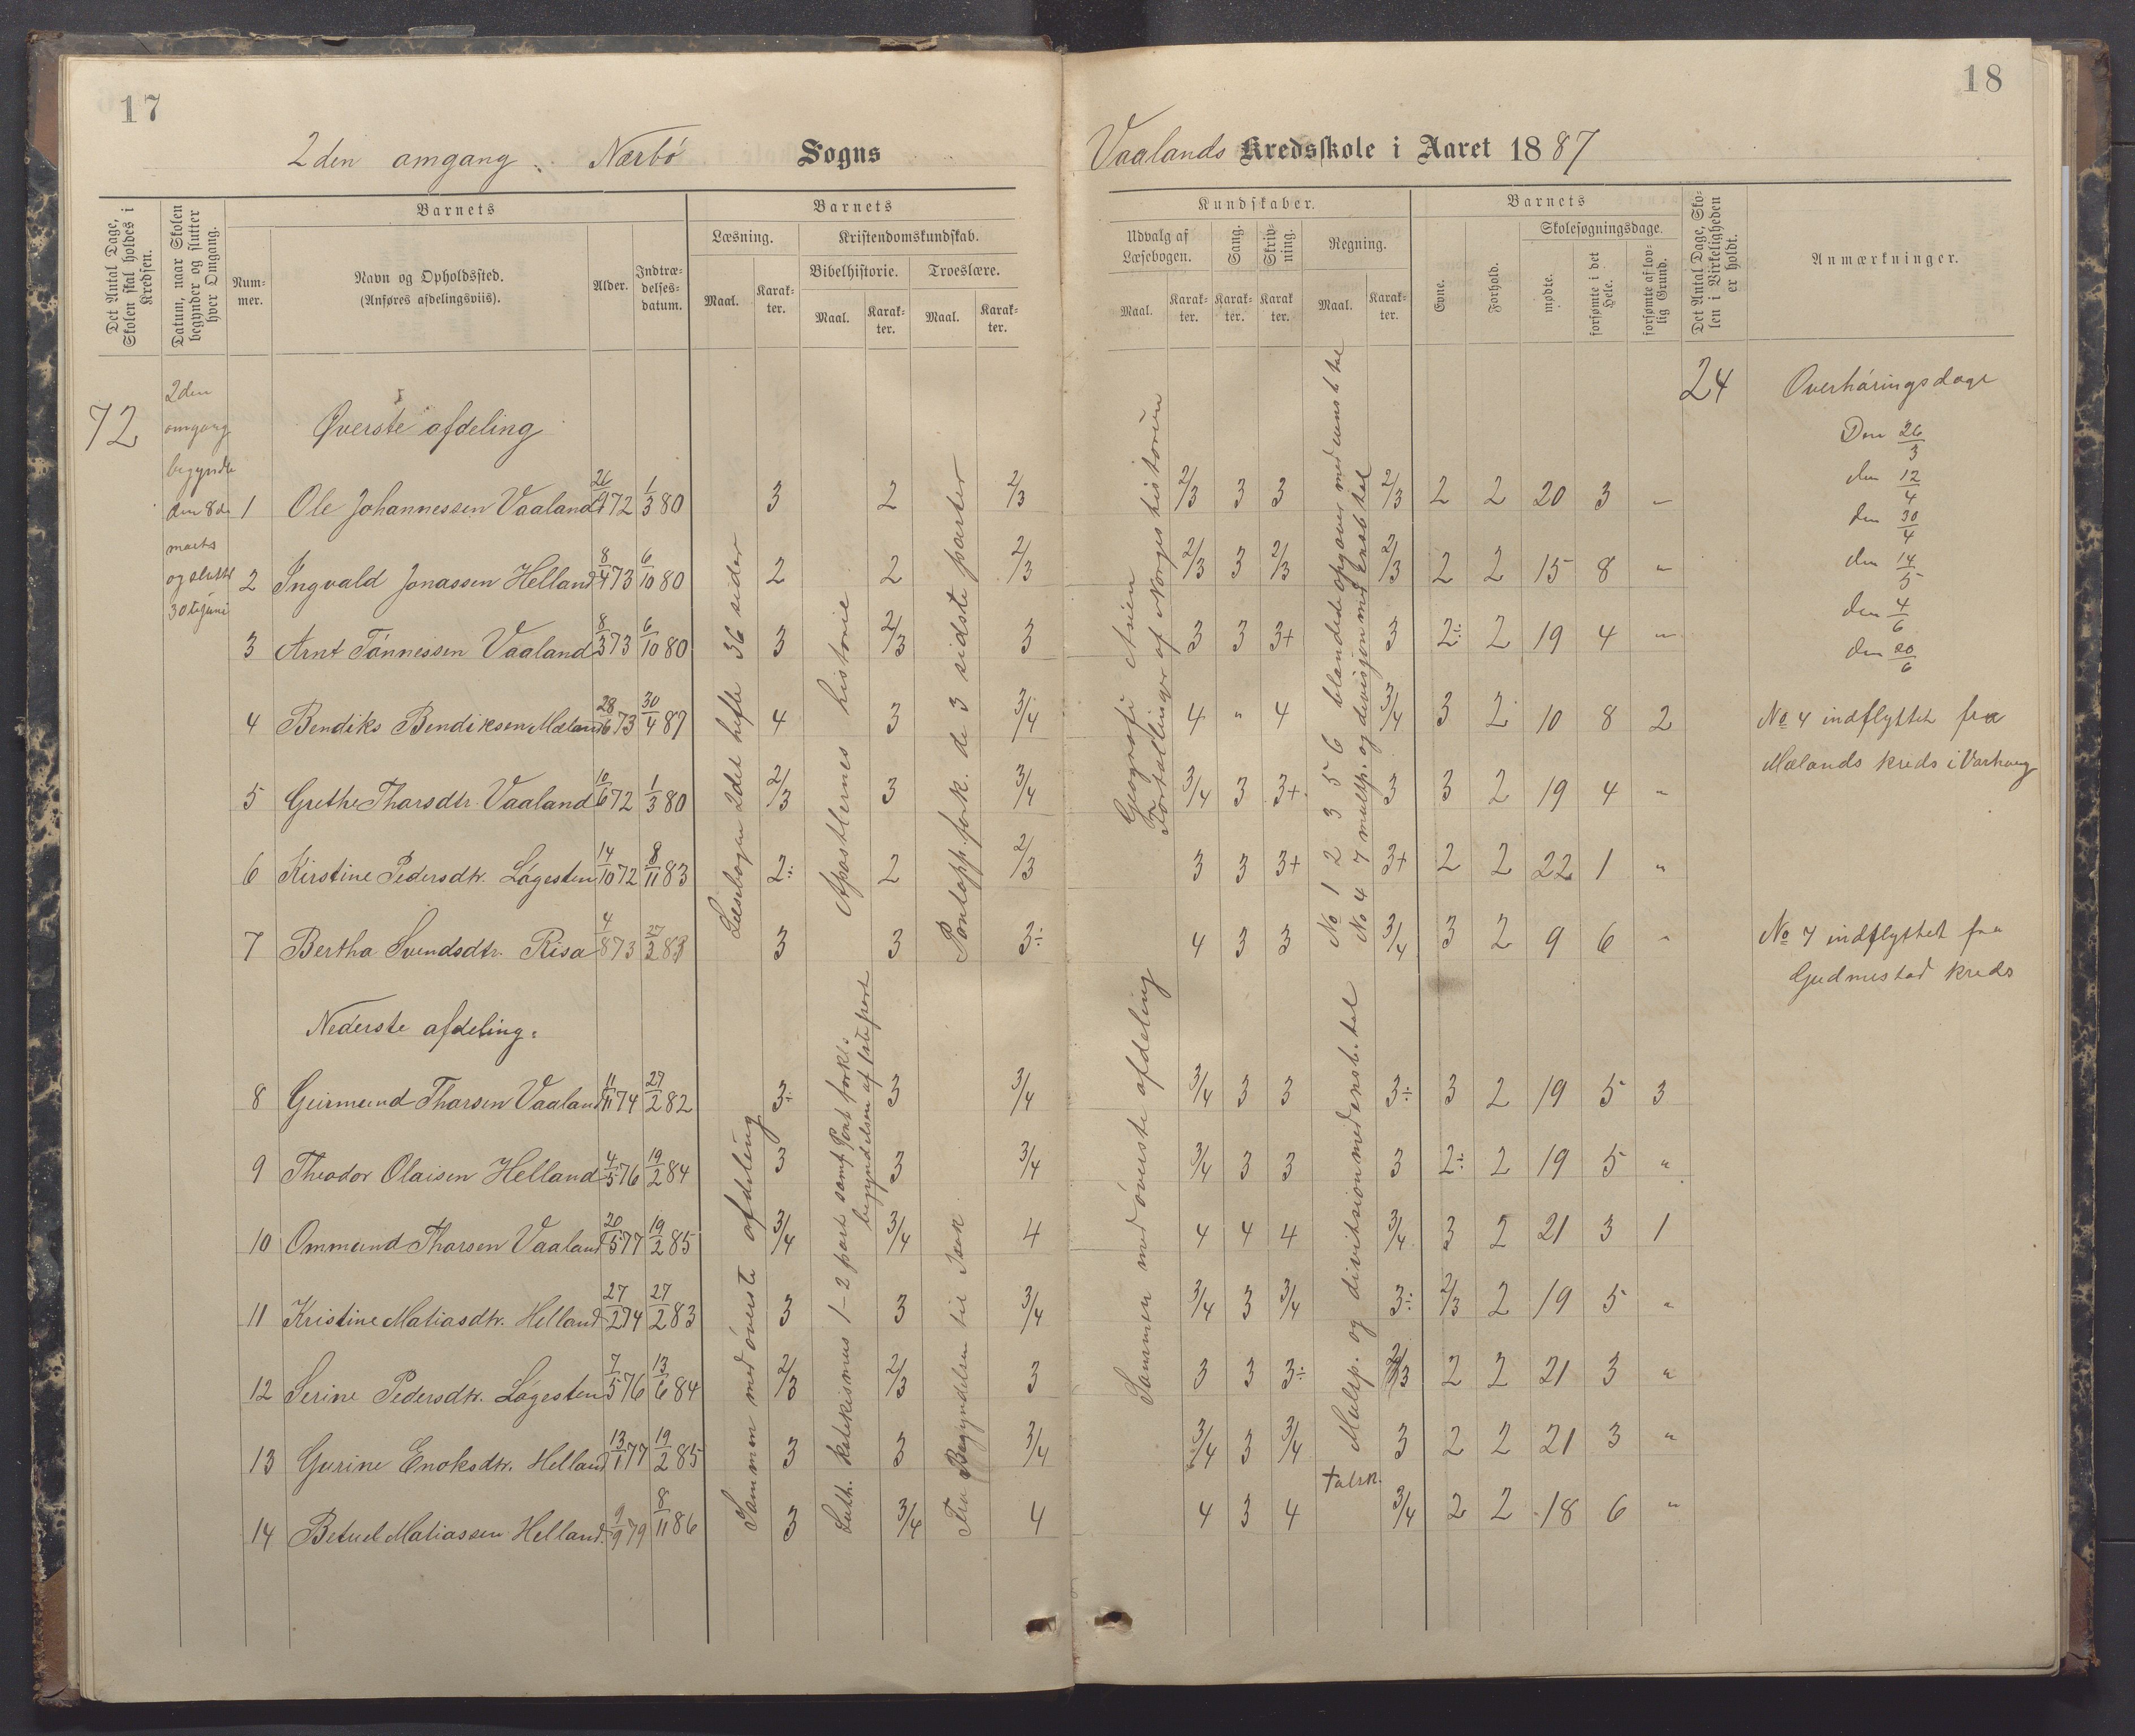 17
2den amgang. Nærbö Sogns
Det Antal Dage, Skolen skal holdes i Kredsen.
Datum, naar Skolen begynder og slutter hver Omgang.
Barnets
Num-
mer.
Navn og Opholdssted.
(Anføres afdelingsviis).
Alder.
Indtræ-
delses-
datum.
Barnets
Læsning.
Kristendomskundskab.
Bibelhistorie.
Troeslære.
Maal.
Karak-
ter.
Maal.
Karak-
ter.
Maal.
Karak-
ter.
72
2den
omgang
begyndte
den 8de
marts
og sluttet
30te juni
Øverste afdeling
1 Ole Johannessen Vaaland 26/9 72 1/3 80 3 2 2/3
2 Ingvald Jonassen Helland 8/4 73 6/10 80 2 2 2/3
3 Arnt Tönnessen Vaaland 8/3 73 6/10 80 3 2/3 3
4 Bendiks Bendiksen Mæland 28/6 73 30/4 87 4 3 3/4
5 Grethe Tharsdtr. Vaaland 10/6 72 1/3 80 2/3 3 3/4
6 Kirstine Pedersdtr. Lögesten 14/10 72 8/11 83 2÷ 2 2/3
7 Bertha Svendsdtr. Risa 4/8 73 27/3 83 3 3 3÷
Læsebogen 2det hefte 36 sider
Apostlernes historie
Pontopp. fork. de 3 sidste parter
Nederste afdeling.
8 Geirmund Tharsen Vaaland 11/11 74 27/2 82 3÷ 3 3/4
9 Theodor Olaisen Helland 4/5 76 19/2 84 3 3 3/4
10 Ommund Tharsen Vaaland 20/5 77 19/2 85 3/4 3/4 4
11 Kristine Matiasdtr. Helland 27/2 74 27/2 83 3 3 3/4
12 Serine Pedersdtr. Lögesten 7/5 76 13/6 84 2/3 2/3 3
13 Gurine Enoksdtr. Helland 13/1 77 19/2 85 3 3 3/4
14 Betuel Matiassen Helland. 9/9 79 8/11 86 3 3/4 4
Sammen med överste afdeling
Luth. katekismus 1-2 part samt Pont forkl.
begyndelsen af 1ste part
Fra Begyndelsen til Isak
18
Vaalands Kredsskole i Aaret 1887
Kundskaber.
Udvalg af
Læsebogen.
Sang.
Skriv-
ning.
Regning.
Maal.
Karak-
ter.
Karak-
ter.
Karak
ter.
Maal.
Karak-
ter.
Barnets
Evne.
Forhold.
Skolesøgningsdage.
mødte.
forsømte i det Hele.
forsømte af lov-
lig Grund.
Det Antal Dage, Sko-
len i Virkeligheden
er holdt.
Anmærkninger.
24 Overhöringsdage
Den 26/3
den 12/4
den 30/4
den 14/5
den 4/6
den 20/6
2/3 3 3 2/3 2 2 20 3 "
2/3 3 2/3 2/3 2 2 15 8 "
3 3 3+ 3 2÷ 2 19 4 "
4 " 4 3/4 3 2 10 8 2
3/4 3 3+ 3 3 2 19 4 "
3 3 3+ 3+ 2 2 22 1 "
4 3 3 3/4 3 2 9 6 "
Geografi Asien
Fortællinger af Norges historien
No 1 2 3 5 6 blandede opgaver med uens b tal
No 4 7 multp. og divisjon med ensb tal
No 4 indflyttet fra
Mælands kreds i Varhaug
No 7 indflyttet fra
Gudmestad kreds
3/4 3 3 3÷ 3 2 19 5 3
3/4 3 3 3 2÷ 2 19 5 "
4 4 4 3/4 3 2 21 3 1
3/4 3 3/4 3÷ 2/3 2 19 5 "
3 3 3÷ 2/3 2 2 21 3 "
3/4 3 3/4 3 2 2 21 3 "
4 3 4 3/4 2 2 18 6 "
Sammen med överste afdeling
Multp. og division med ensb. tal